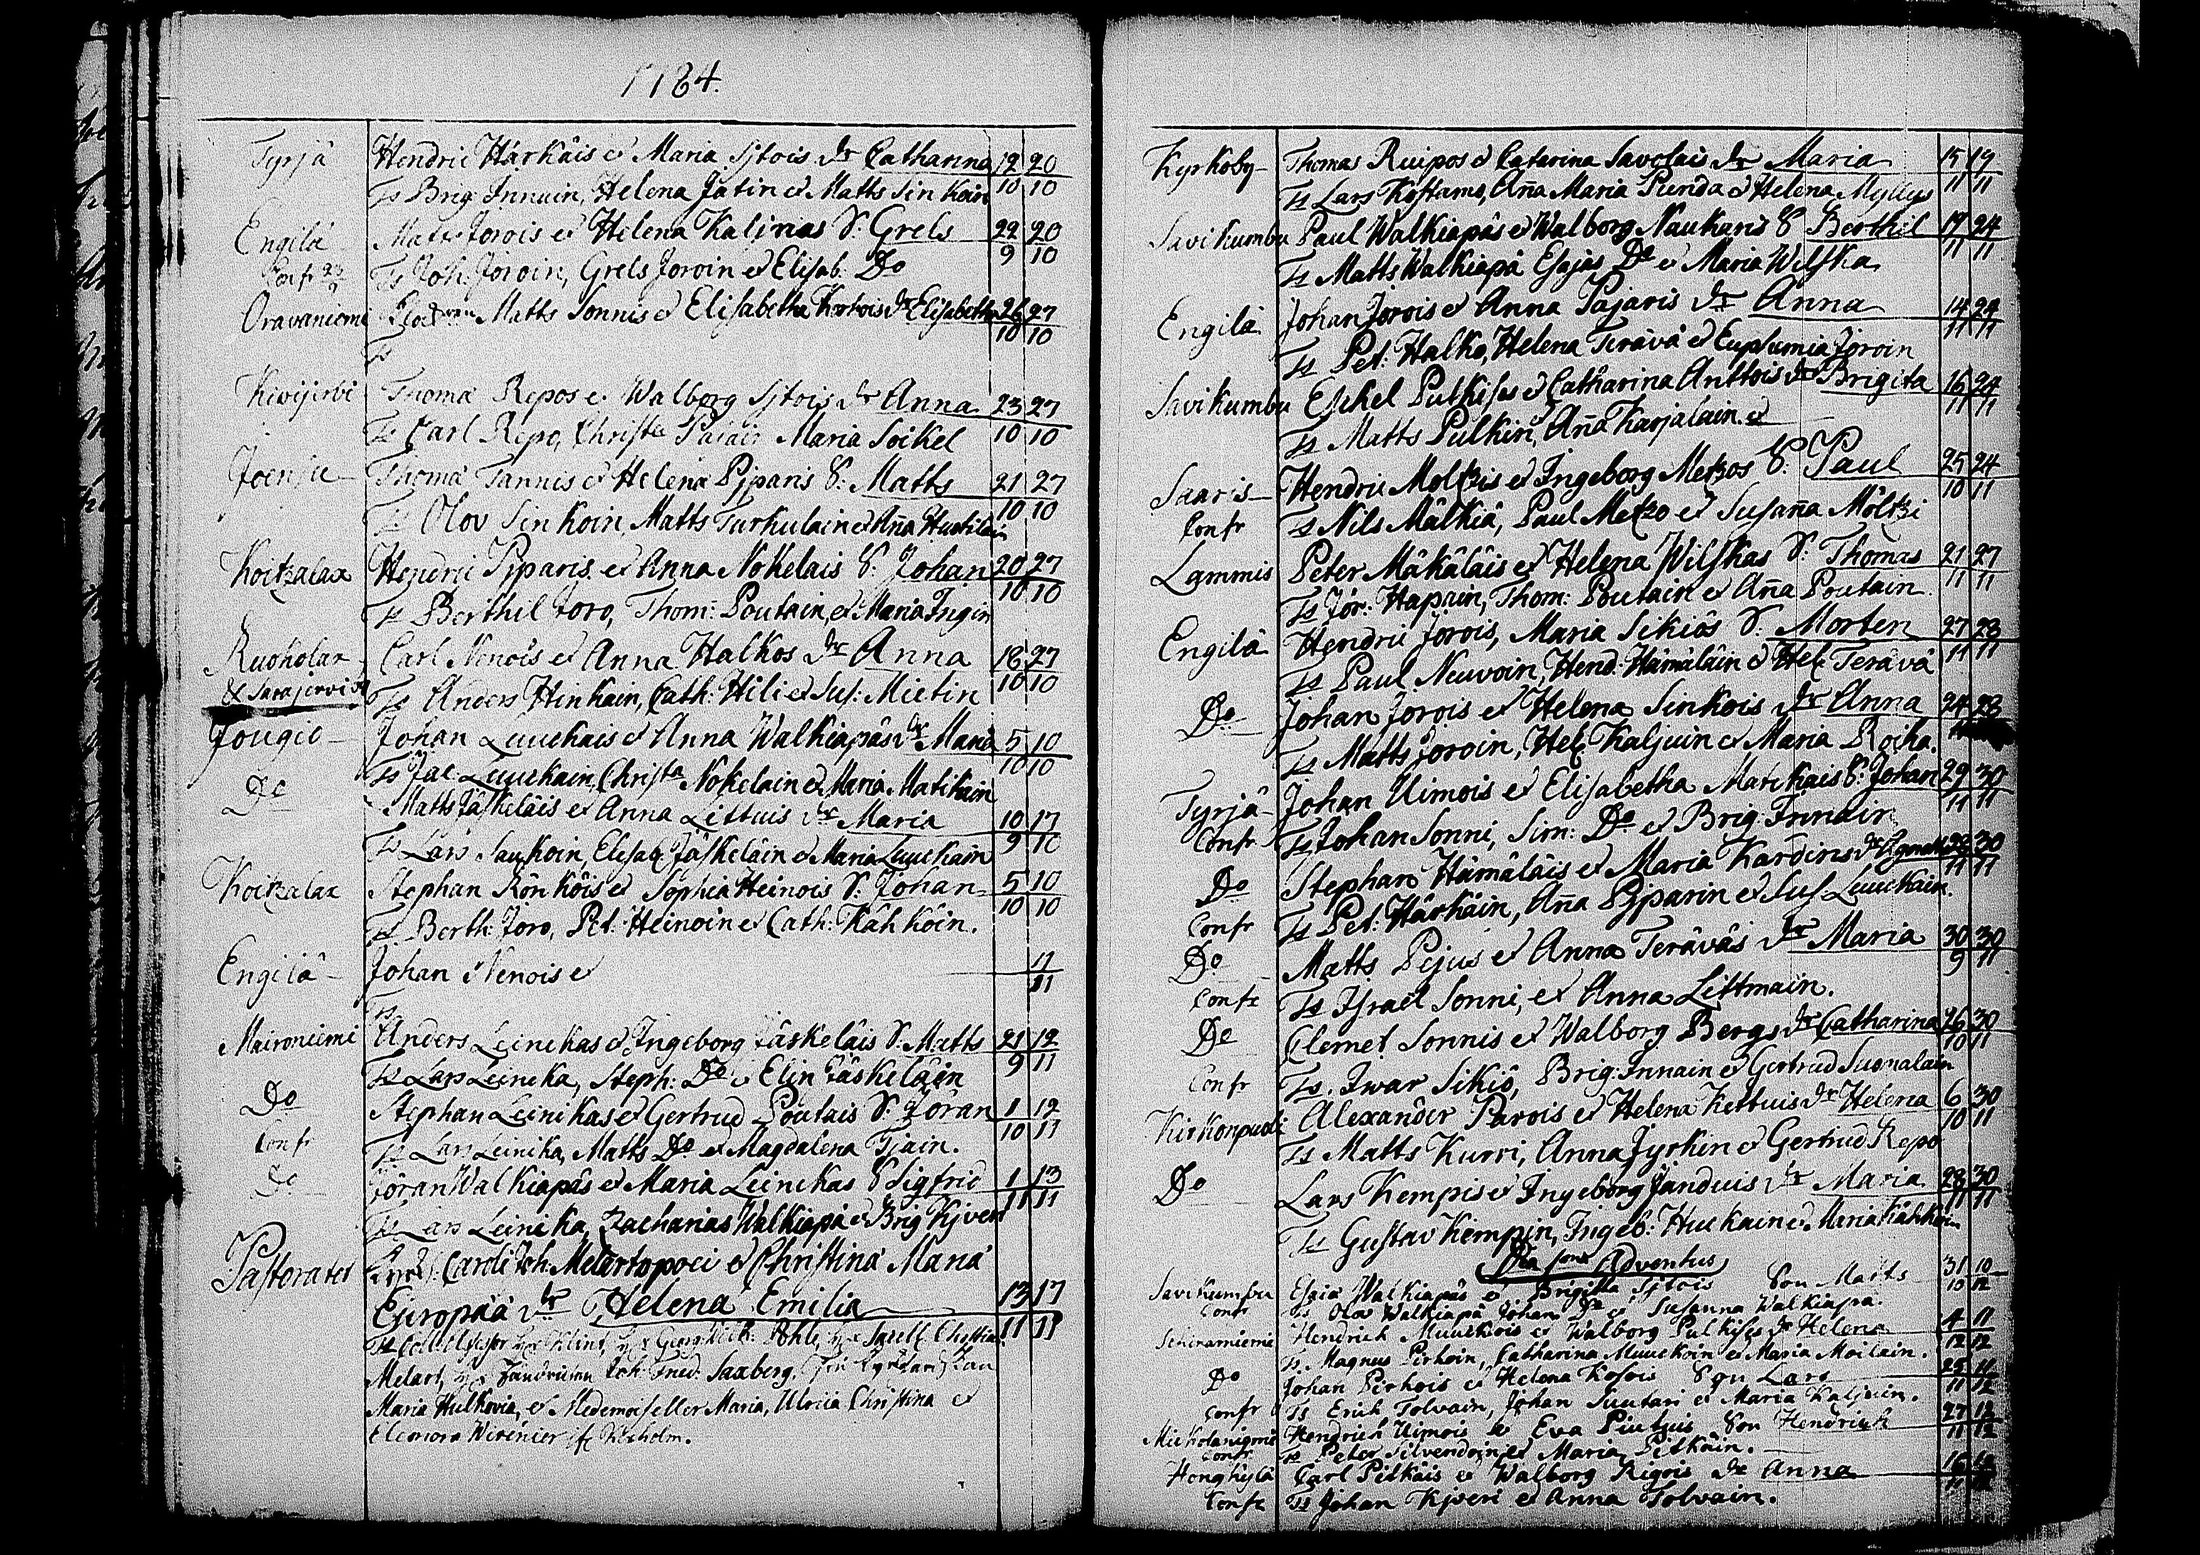 1784.
Tyrjä Hendric Härkäis et Maria Sjtois dr Catharina 12/10 20/10
Ts Brig Innain, Helena Jatin et Matts Sinkoin
Engilä Matts Jorois et Helena Kaljuias S: Grels 22/9 20/10
Confr Ts Joh: Joroin, Grels Joroin et Elisab: Do
Oravaniemi Matts Sonnis et Elisabetha dr Elisabetha 26/10 27/10
Ts
Kivijervi Thoma Repos et Walborg Sjtois dr Anna 23/10 27/10
Ts Carl Repo, Christa Maria Soikel
Joensu Thoma Tannis et Helena Pjparis S: Matts 21/10 27/10
Ts Olov Sinkoin, Matts Turkulain et Aña
Koitzalax Hendric Pjparis et Anna Nokelais S: Johan 20/10 27/10
Ts Berthil Joro, Thom: Poutain, et Maria Ingin
Ruoholax Carl Nenois et Anna Halkos dr Anna 18/10 27/10
& Sarajervi Ts Anders Hinkain, Cath: Hili et Sus: Mietin
Jougio Johan Luuckais et Anna Walkiapäs dr Maria 5/10 10/10
Ts Jac Luuckain, Christa Nokelain et Maria Matikain
Do Matts Jäskeläis et Anna Littuis dr Maria 10/9 17/10
Ts Lars Saukoin, Elisab Jäskeläin et Maria Luuckain
Koitzalax Stephan Rönköis et Sophia Heinois S: Johan 5/10 10/10
Ts Berth: Joro, Pet: Heinoin et Cath: Kähköin.
Engilä Johan Nenois et 11/11
Ts
Maironiemi Anders Leinikas et Ingeborg Jäskeläis S: Matts 21/9 12/11
Ts Lars Leinika, Steph: Do et Elin Jäskeläin
Do Stephan Leinikas et Gertrud Poutais S: Jöran 1/10 12/11
Confr Ts Lars Leinika, Matts Do et Magdalena Tjain.
Do Jöran Walkiapäs et Maria Leinikas S Sigfrid 1/11 13/11
Ts Lars Leinika, Zacharias Walkiapä et Brig Kjveri
Pastoratet Caroli Joh. Melartopoei et Christina Maria
Europaea dr Helena Emilia 13/11 17/11
Ts Klint, Georg Pohle,
Melart, Joh Fred: Saxberg,
Maria Hulkovia, et Mademoiseller Maria, Ulrica Christina et
Eleonora Wirenier fr Kexholm.
Kyrkoby Thomas Ruipos et Caterina Savolais dr Maria 15/11 19/11
Ts Lars Kostamo, Aña Maria Purida et Helena Myllys
Savikumbu Paul Walkiapäs et Walborg Naukaris S Berthil 17/11 24/11
Ts Matts Walkiapä Esajas Do et Maria Wilska
Engilä Johan Jorois et Anna Pajaris dr Anna 14/11 24/11
Ts Pet: Halko, Helena Terävä et Euphemia Joroin
Savikumbu Eskel Pulkises et Catharina Anttois dr Brigita 16/11 24/11
Ts Matts Pulkin, Aña Karjalain. et
Saaris Hendric Moltzis et Ingeborg Metzos S: Paul 25/10 24/11
Confr Ts Nils Mälkiä, Paul Metzo et Susaña Möltzi
Lammis Peter Mäkäläis et Helena Wilskas S: Thomas 21/11 27/11
Ts Jör: Hapain, Thom: Poutain et Aña Poutain
Engilä Hendric Jorois, Maria Sikiös S: Morten 27/11 28/11
Ts Paul Neuvoin, Hend: Hämäläin et Hel: Terävä
Do Johan Jorois et Helena Sinkois dr Anna 24 28
Ts Matts Joroin, Hel: Kaljuin et Maria Rocka.
Tyrjä Johan Uimois et Elisabetha Matikais S: Johan 29/11 30/11
Confr Ts Johan Sonni, Sim: Do et Brig: Innain
Do Stephan Hämäläis et Maria Kardins dr 28/11 30/11
Confr Ts Pet: Härkäin, Aña Pjparin et Sus Luuckain.
Do Matts Pejus et Anna Teräväs dr Maria 30/9 30/11
Confr Ts Isräel Sonni, et Anna Littmain.
Do Clemet Sonnis et Walborg Bergs dr Catharina 26/10 30/11
Confr Ts. Iwar Sikiö, Brig: Innain et Gertrud Suomalain
Kirkonpuoli Alexander Parois et Helena Kettuis dr Helena 6/10 30/11
Ts Matts Kurri, Anna Jyrkin et Gertrud Repo
Do Lars Kempis et Ingeborg Janduis dr Maria 28/11 30/11
Ts Gustav Kempin, Ingeb: Huckain et Maria Kähköin
Dca 1ma Adventus
Savikumbu Esaia Walkiapäs et Brigitta Sjtois Son Matts 31/10 10/12
Confr Ts Olov Walkiapä Johan Do et Susanna Walkiapä.
Hendrick Muuckois et Walborg Pulkises dr Helena 4/12 11/12
Ts Magnus Pirhoin, Catharina Muuckoin et Maria Moilain.
Do Johan Pirhois et Helena Kosois Son Lars 25/11 11/12
Confr Ts Erich Tolvain, Johan Suutari et Maria Kaljuin.
Mickolaniemi Hendrich Uimois et Eva Piutuis Son Hendrich 27/11 12/12
Confr Ts Peter Silvendoin et Maria Pitkäin.
Honghylä Carl Pitkäis et Walborg Rigois dr Anna 16/11 12/12
Confr Ts Johan Kjveri et Anna Tolvain.